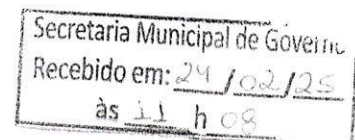 Secretaria Municipal de Governo
Recebido em: 24 / 02 / 25
às 11 h 08